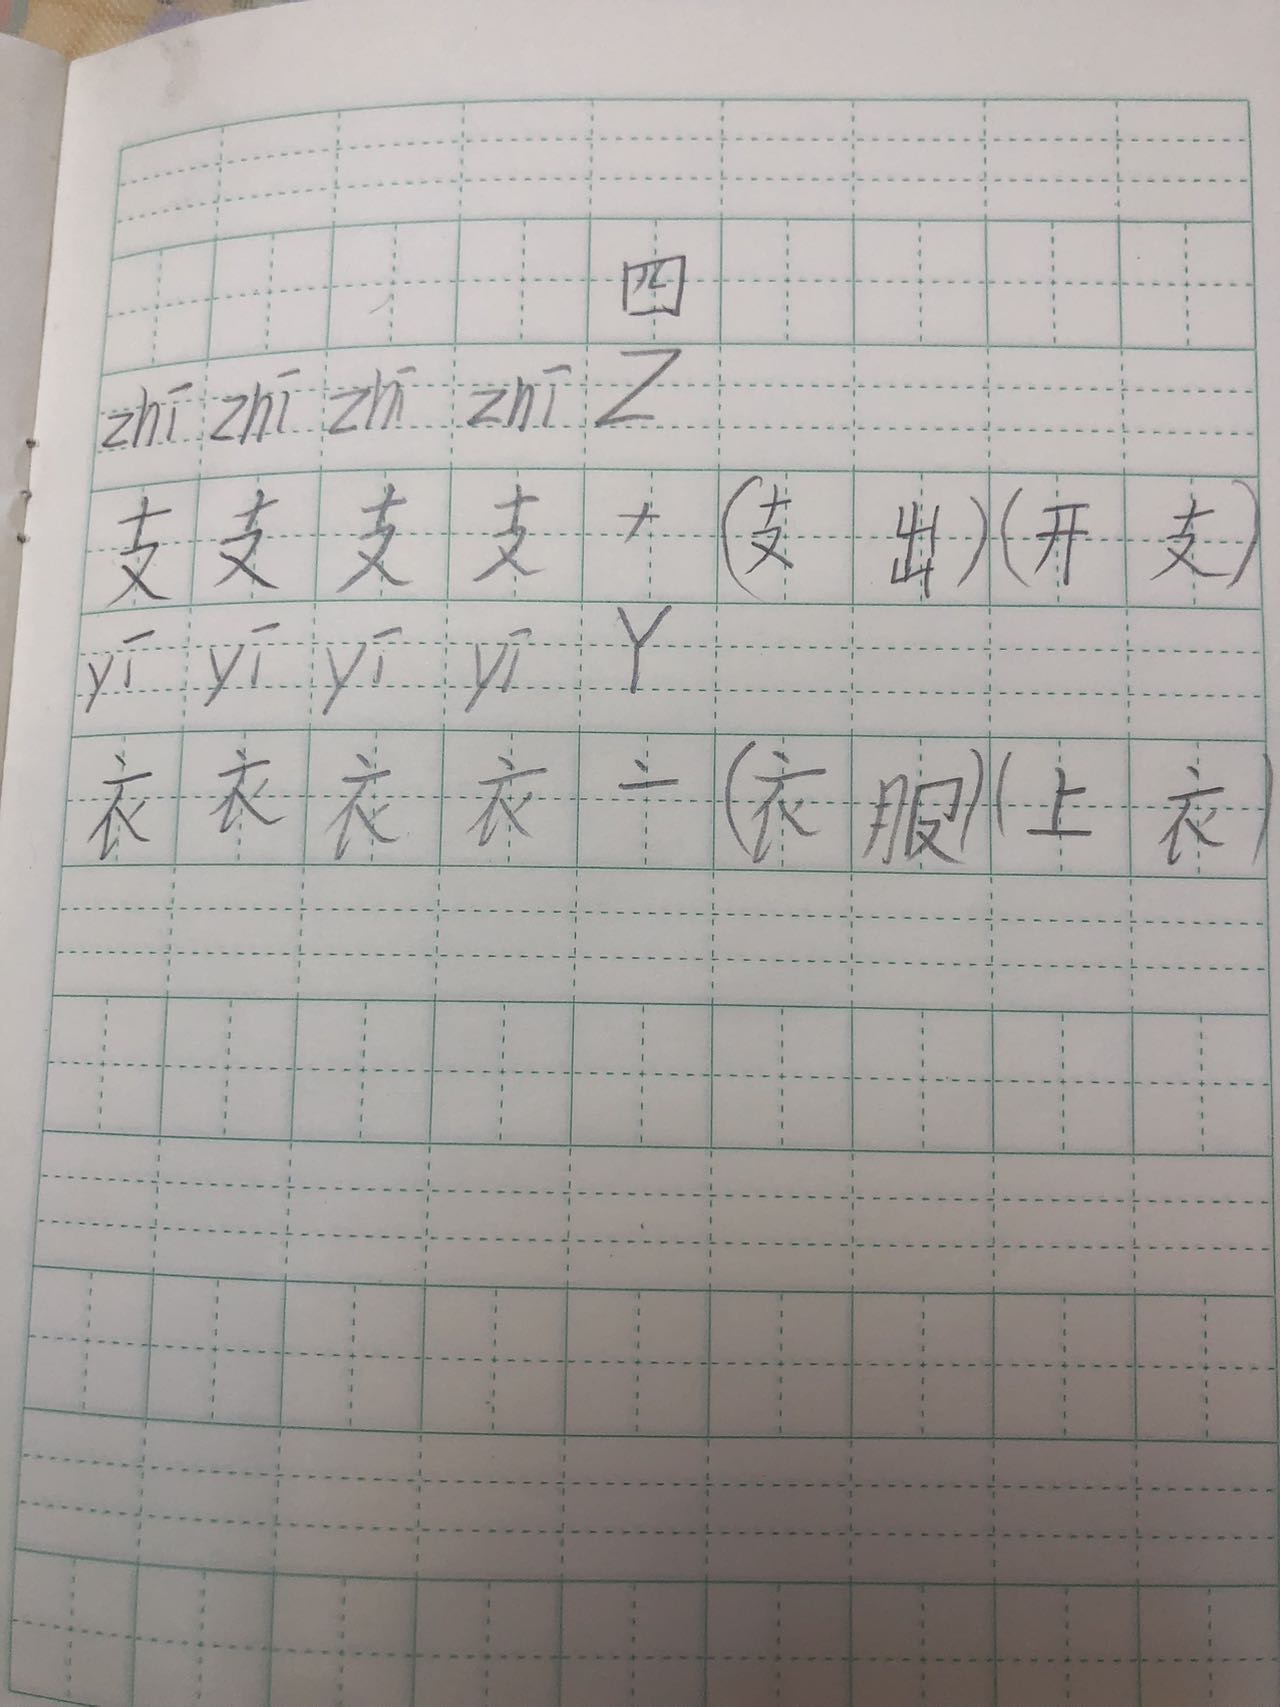 四
zhī zhī zhī zhī Z
支 支 支 支 十 (支 出) (开 支)
yī yī yī yī Y
衣 衣 衣 衣 亠 (衣 服) (上 衣)